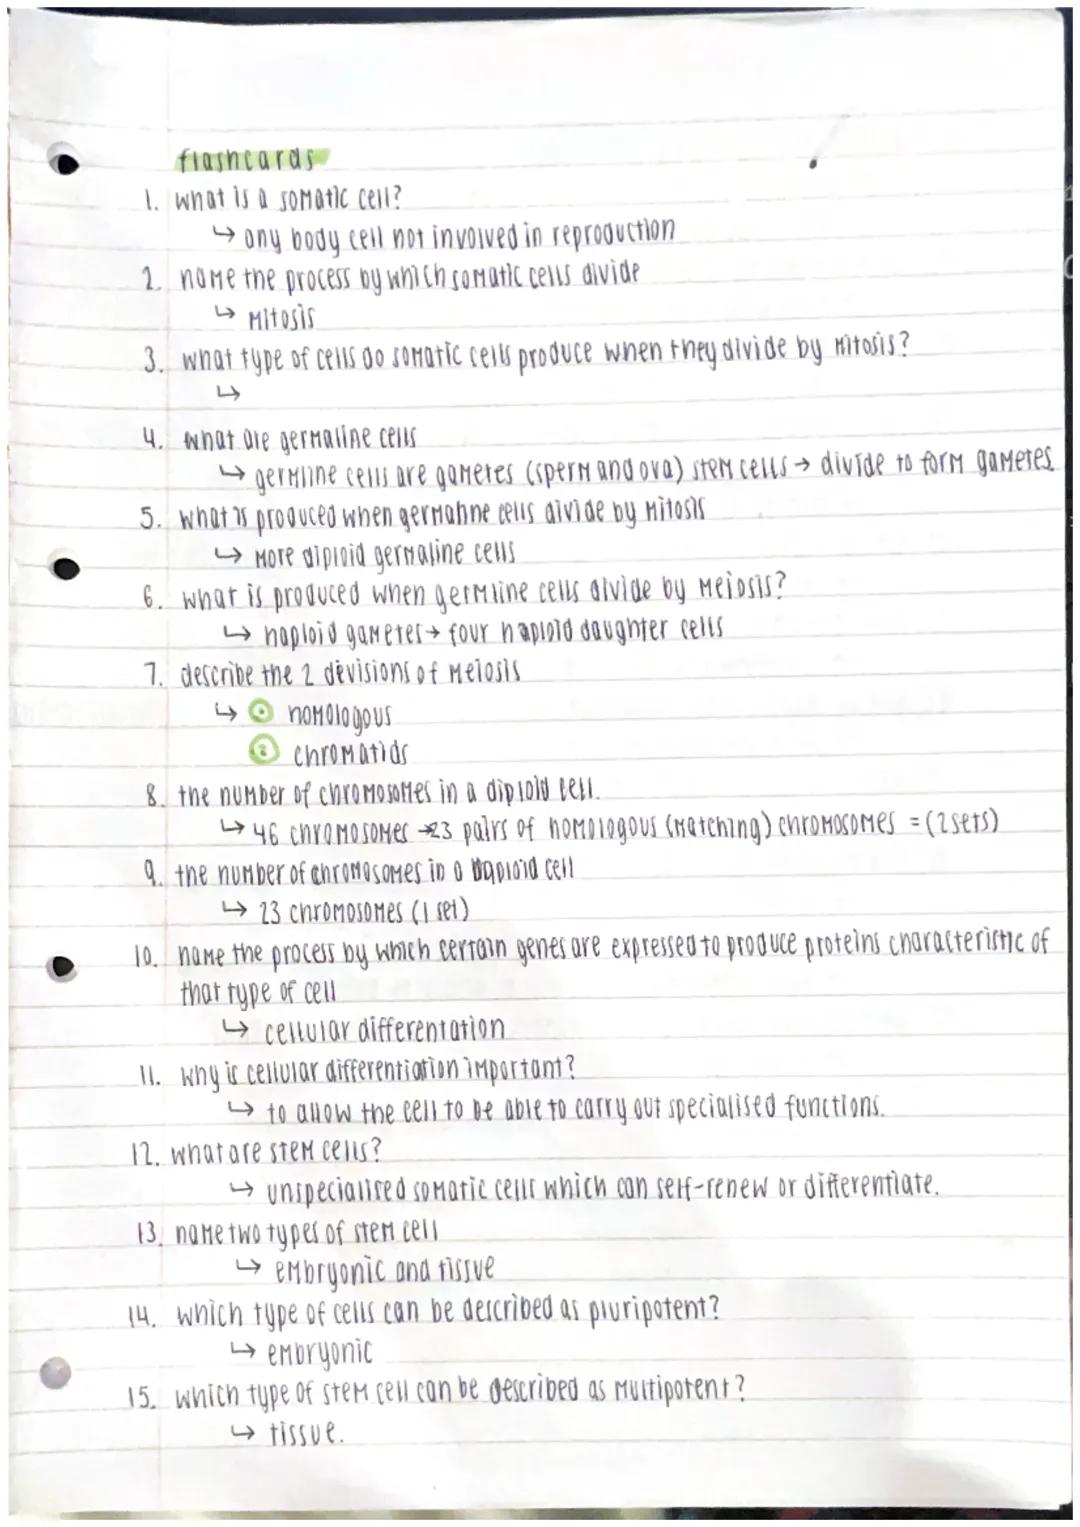 flashcards
1. what is a somatic cell?
↳ any body cell not involved in reproduction
2. name the process by which somatic cells divide
↳ Mitosis
3. what type of cells do somatic cells produce when they divide by mitosis?
↳
4. what are germaline cells
↳ germline cells are gametes (sperm and ova) stem cells → divide to form gametes
5. what is produced when germaline cells divide by mitosis
↳ More diploid germaline cells
6. what is produced when germline cells divide by meiosis?
↳ haploid gametes → four haploid daughter cells
7. describe the 2 devisions of meiosis
↳ ① homologous
② chromatids
8. the number of chromosomes in a diploid cell.
↳ 46 chromosomes → 23 pairs of homologous (matching) chromosomes = (2 sets)
9. the number of chromosomes in a haploid cell
↳ 23 chromosomes (1 set)
10. name the process by which certain genes are expressed to produce proteins characteristic of
that type of cell
↳ cellular differentation
11. why is cellular differentiation important?
↳ to allow the cell to be able to carry out specialised functions.
12. what are stem cells?
↳ unspecialised somatic cells which can self-renew or differentiate.
13. name two types of stem cell
↳ embryonic and tissue
14. which type of cells can be described as pluripotent?
↳ embryonic
15. which type of stem cell can be described as multipotent?
↳ tissue.